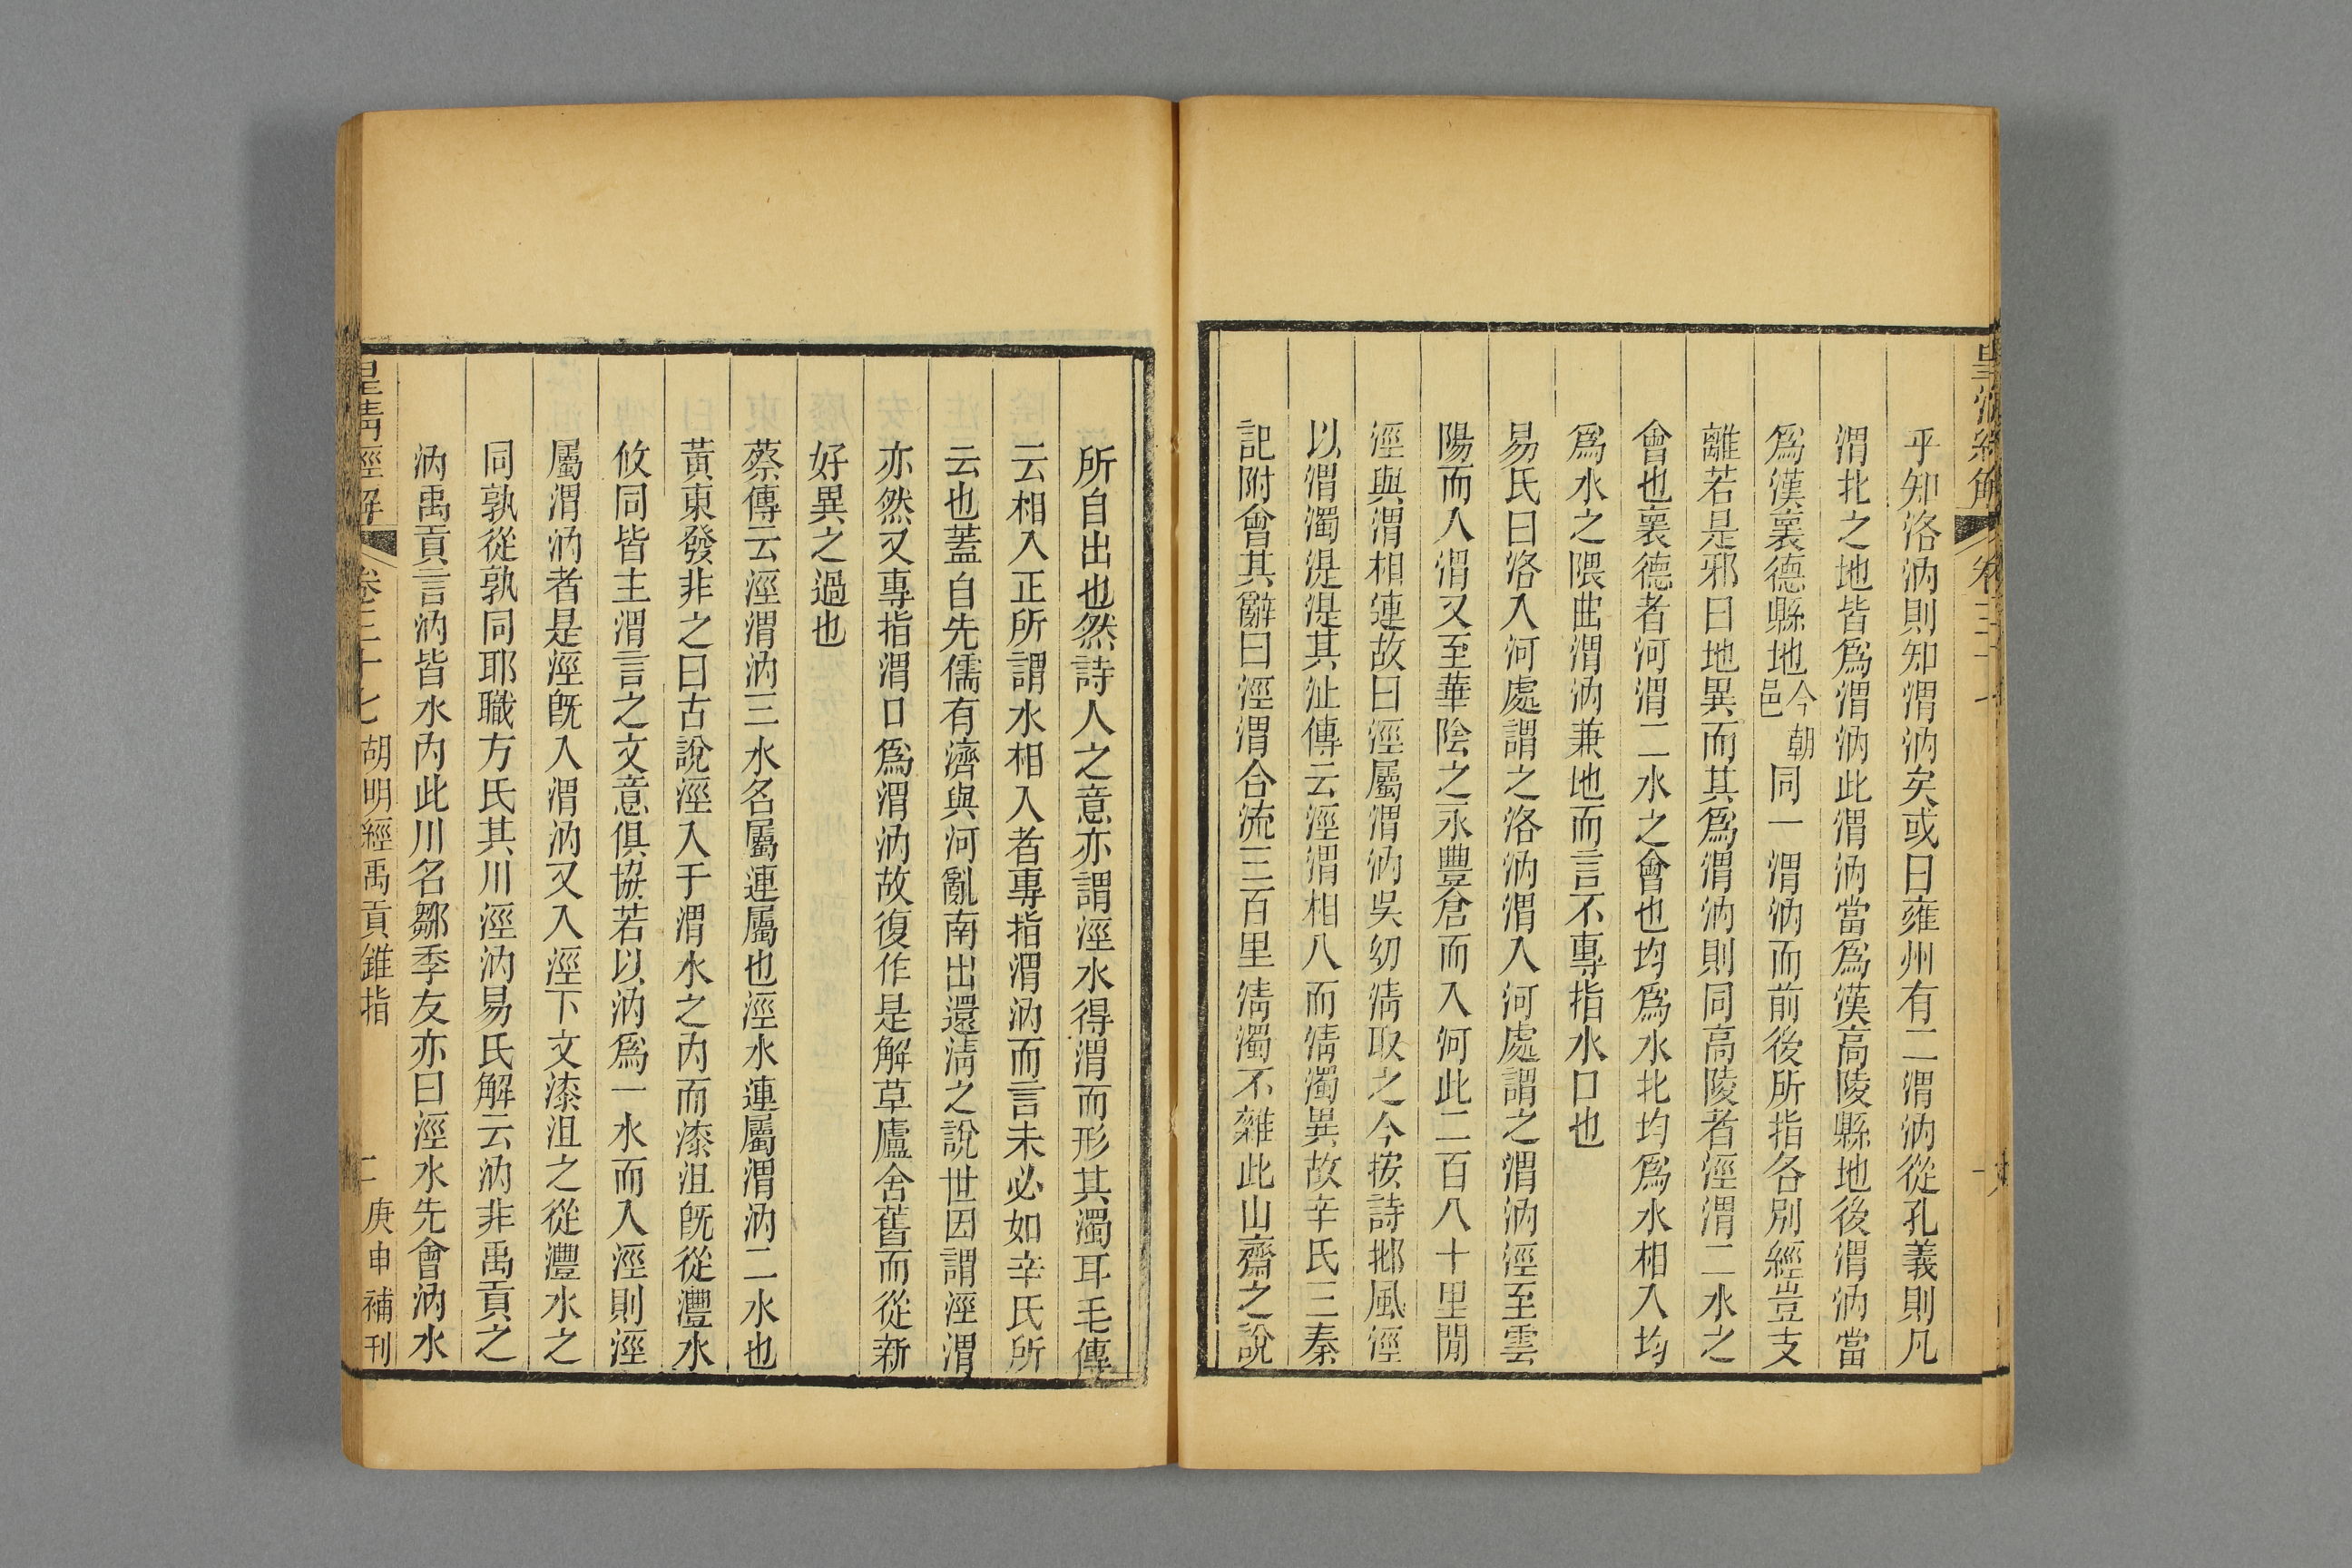 乎知洛汭則知渭汭矣或曰雍州有二渭汭從孔義則凡
渭北之地皆爲渭汭此渭汭當爲漢高陵縣地後渭汭當
爲漢褱德縣地今朝邑同一渭汭而前後所指各別經豈支
離若是邪曰地異而其爲渭汭則同高陵者涇渭二水之
會也褱德者河渭二水之會也均爲水北均爲水相入均
爲水之隈曲渭汭兼地而言不專指水口也
易氏曰洛入河處謂之洛汭渭入河處謂之渭汭涇至雲
陽而入渭又至華陰之永豐倉而入河此二百八十里閒
涇與渭相連故曰涇屬渭汭吳幼淸取之今按詩邶風涇
以渭濁湜湜其沚傳云涇渭相入而淸濁異故辛氏三秦
記附會其辭曰涇渭合流三百里淸濁不雜此山齋之說
所自出也然詩人之意亦謂涇水得渭而形其濁耳毛傳
云相入正所謂水相入者專指渭汭而言未必如辛氏所
云也蓋自先儒有濟與河亂南出還淸之說世因謂涇渭
亦然又專指渭口爲渭汭故復作是解草廬舍舊而從新
好異之過也
蔡傳云涇渭汭三水名屬連屬也涇水連屬渭汭二水也
黃東發非之曰古說涇入于渭水之內而漆沮旣從灃水
攸同皆主渭言之文意俱協若以汭爲一水而入涇則涇
屬渭汭者是涇旣入渭汭又入涇下文漆沮之從灃水之
同孰從孰同耶職方氏其川涇汭易氏解云汭非禹貢之
汭禹貢言汭皆水內此川名鄒季友亦曰涇水先會汭水
皇淸經解
卷三十七
胡明經禹貢錐指
二
庚申補刊